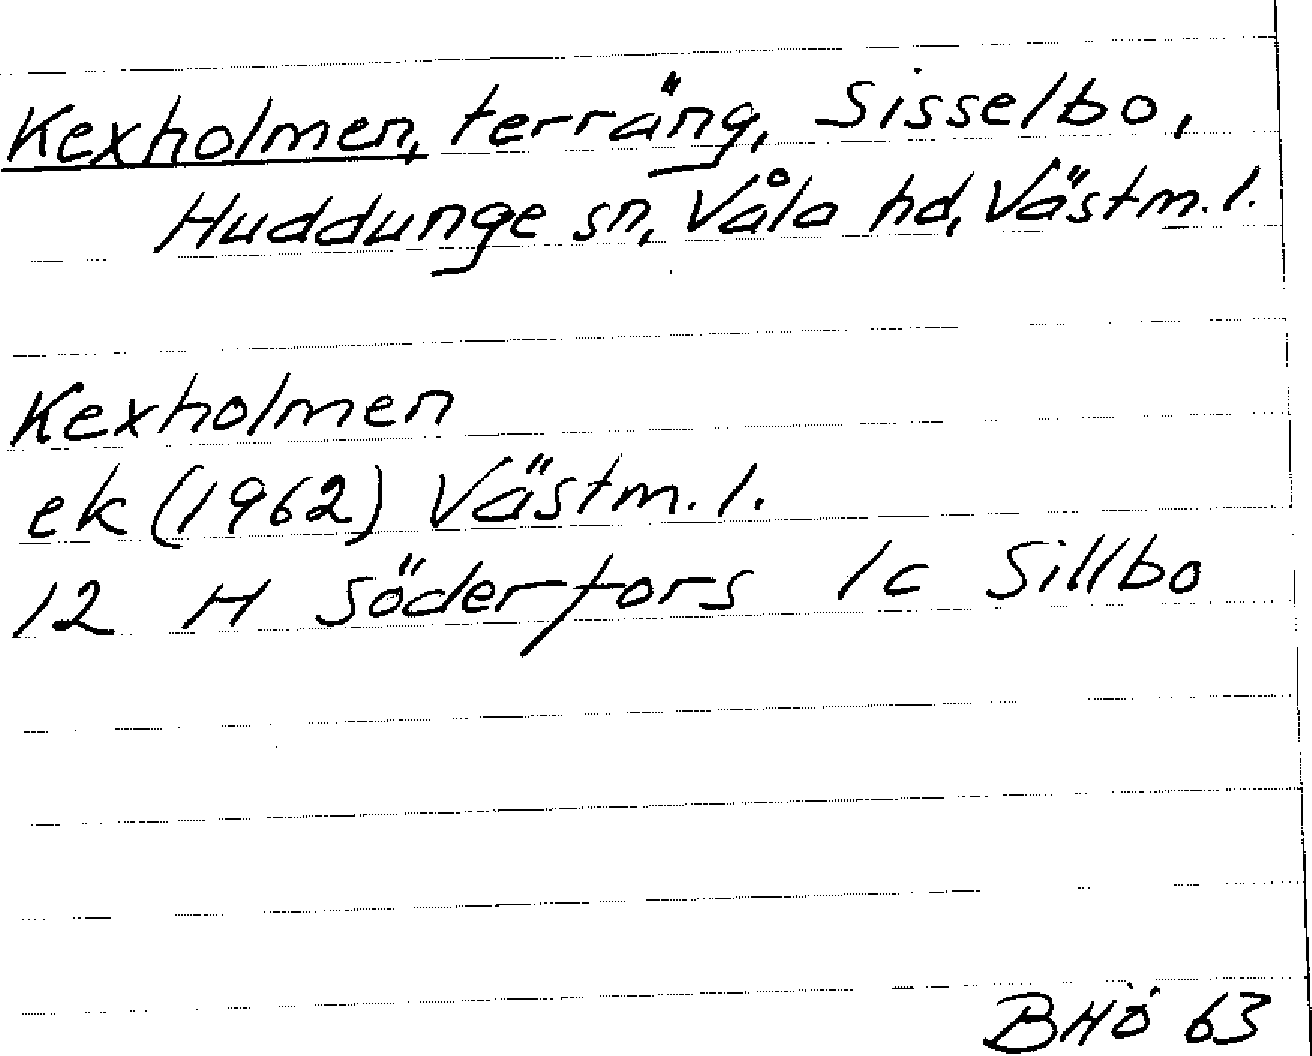 Kexholmen, terräng, Sisselbo,
Huddunge sn, Våla hd, Västm. l.
Kexholmen
ek (1962) Västm. l.
12 H Söderfors 1c Sillbo
BHÖ 63